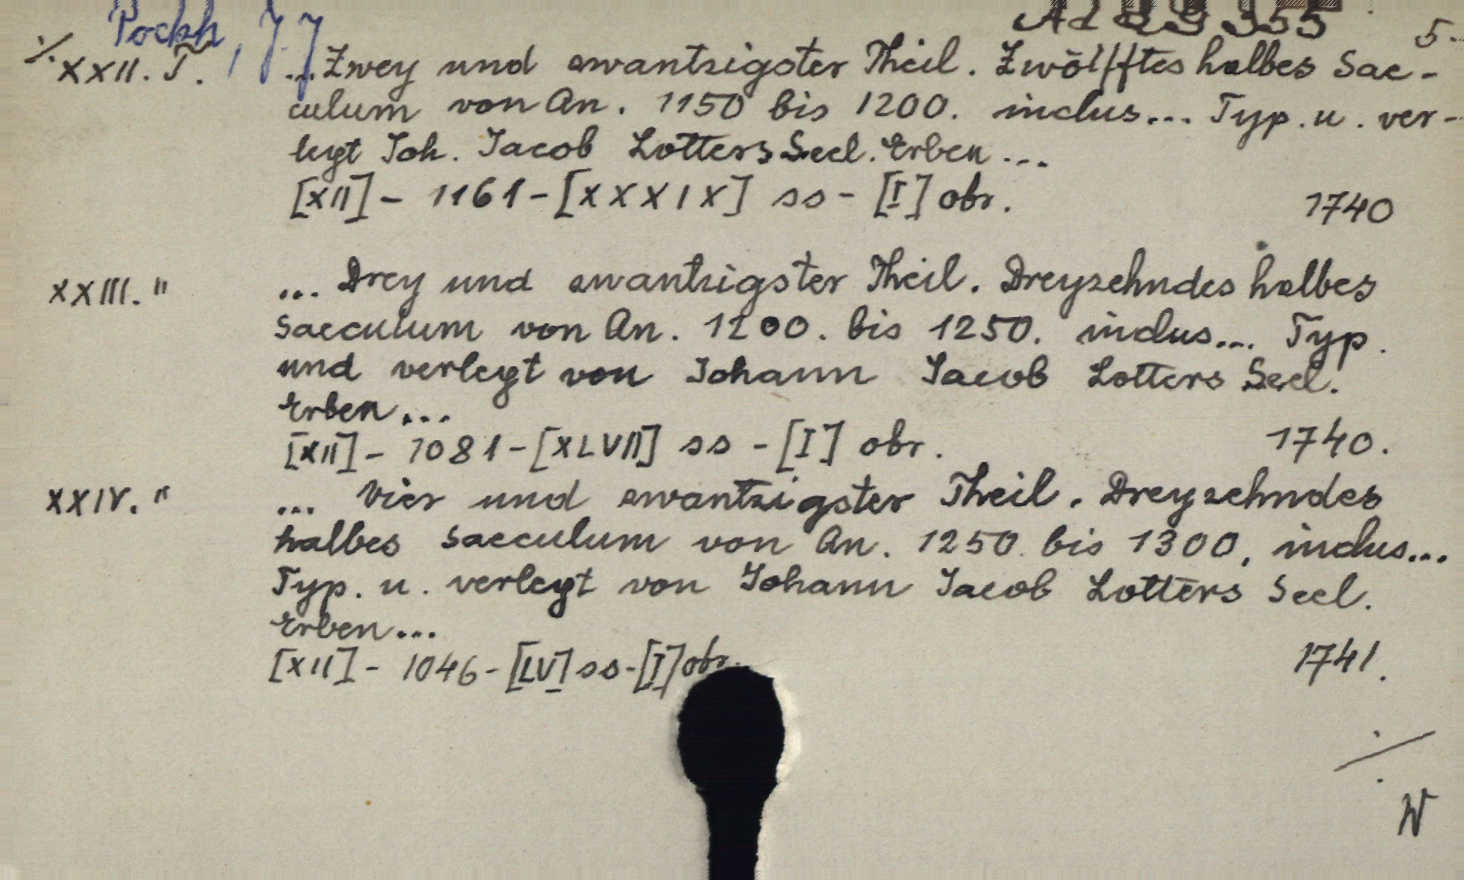 Pockh, J.J
Ad 29355 5.
./. XXII. T. ... Zwey und zwantzigster Theil. Zwölfftes halbes Sae-
culum von An. 1150 bis 1200. inclus... Typ. u. ver-
legt Joh. Jacob Lotters Seel. Erben ...
[XII] - 1161 - [XXXIX] ss - [I] obr. 1740
XXIII. " ... Drey und zwantzigster Theil. Dreyzehndes halbes
Saeculum von An. 1200. bis 1250. inclus... Typ.
und verlegt von Johann Jacob Lotters Seel.
Erben ...
[XII] - 1081 - [XLVII] ss - [I] obr. 1740.
XXIV. " ... Vier und zwantzigster Theil. Dreyzehndes
halbes Saeculum von An. 1250. bis 1300, inclus...
Typ. u. verlegt von Johann Jacob Lotters Seel.
Erben ...
[XII] - 1046 - [LV] ss - [I] obr. 1741.
./.
W